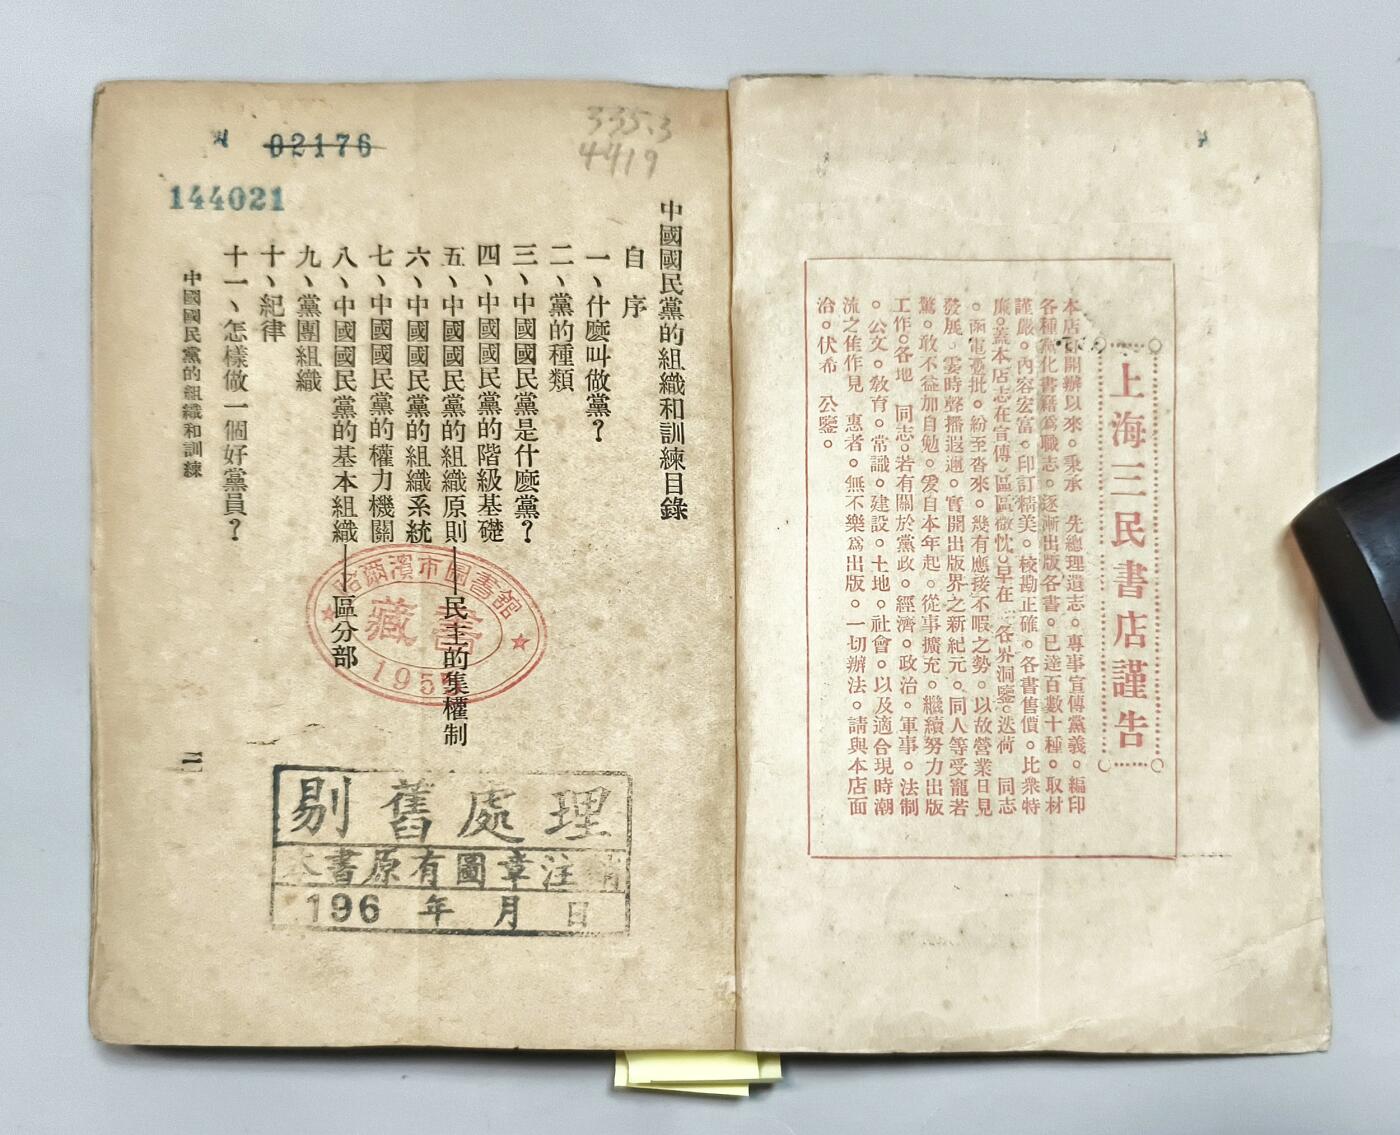 上海三民書店謹告
本店自開辦以來。秉承　先總理遺志。專事宣傳黨義。編印
各種黨化書籍爲職志。逐漸出版各書。已達百數十種。取材
謹嚴。內容宏富。印訂精美。校勘正確。各書售價。比衆特
廉。蓋本店志在宣傳。區區微忱。早在　各界洞鑒。迭荷　同志
。函電獎批。紛至沓來。幾有應接不暇之勢。以故營業日見
發展。雲時聲播遐邇。實開出版界之新紀元。同人等受寵若
驚。敢不益加自勉。爰自本年起。從事擴充。繼續努力出版
工作。各地　同志。若有關於黨政。經濟。政治。軍事。法制
。公文。敎育。常識。建設。土地。社會。以及適合現時潮
流之隹作見　惠者。無不樂爲出版。一切辦法。請與本店面
治。伏希　公鑒。
335.3
4419
02176
144021
中國國民黨的組織和訓練目錄
自序
一、什麼叫做黨？
二、黨的種類
三、中國國民黨是什麼黨？
四、中國國民黨的階級基礎
五、中國國民黨的組織原則——民主的集權制
六、中國國民黨的組織系統
七、中國國民黨的權力機關
八、中國國民黨的基本組織——區分部
九、黨團組織
十、紀律
十一、怎樣做一個好黨員？
中國國民黨的組織和訓練
哈爾濱市圖書館
藏書
1955
剔舊處理
本書原有圖章注銷
196 年 月 日